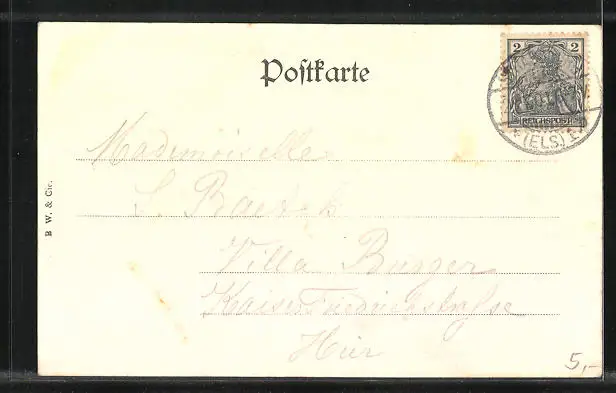 Postkarte
2 2
REICHSPOST
(ELS)
Mademoiselle
L. Baer
Villa Burger
Kaiser Friedrichstrasse
Hier
B. W. & Cie.
5,-